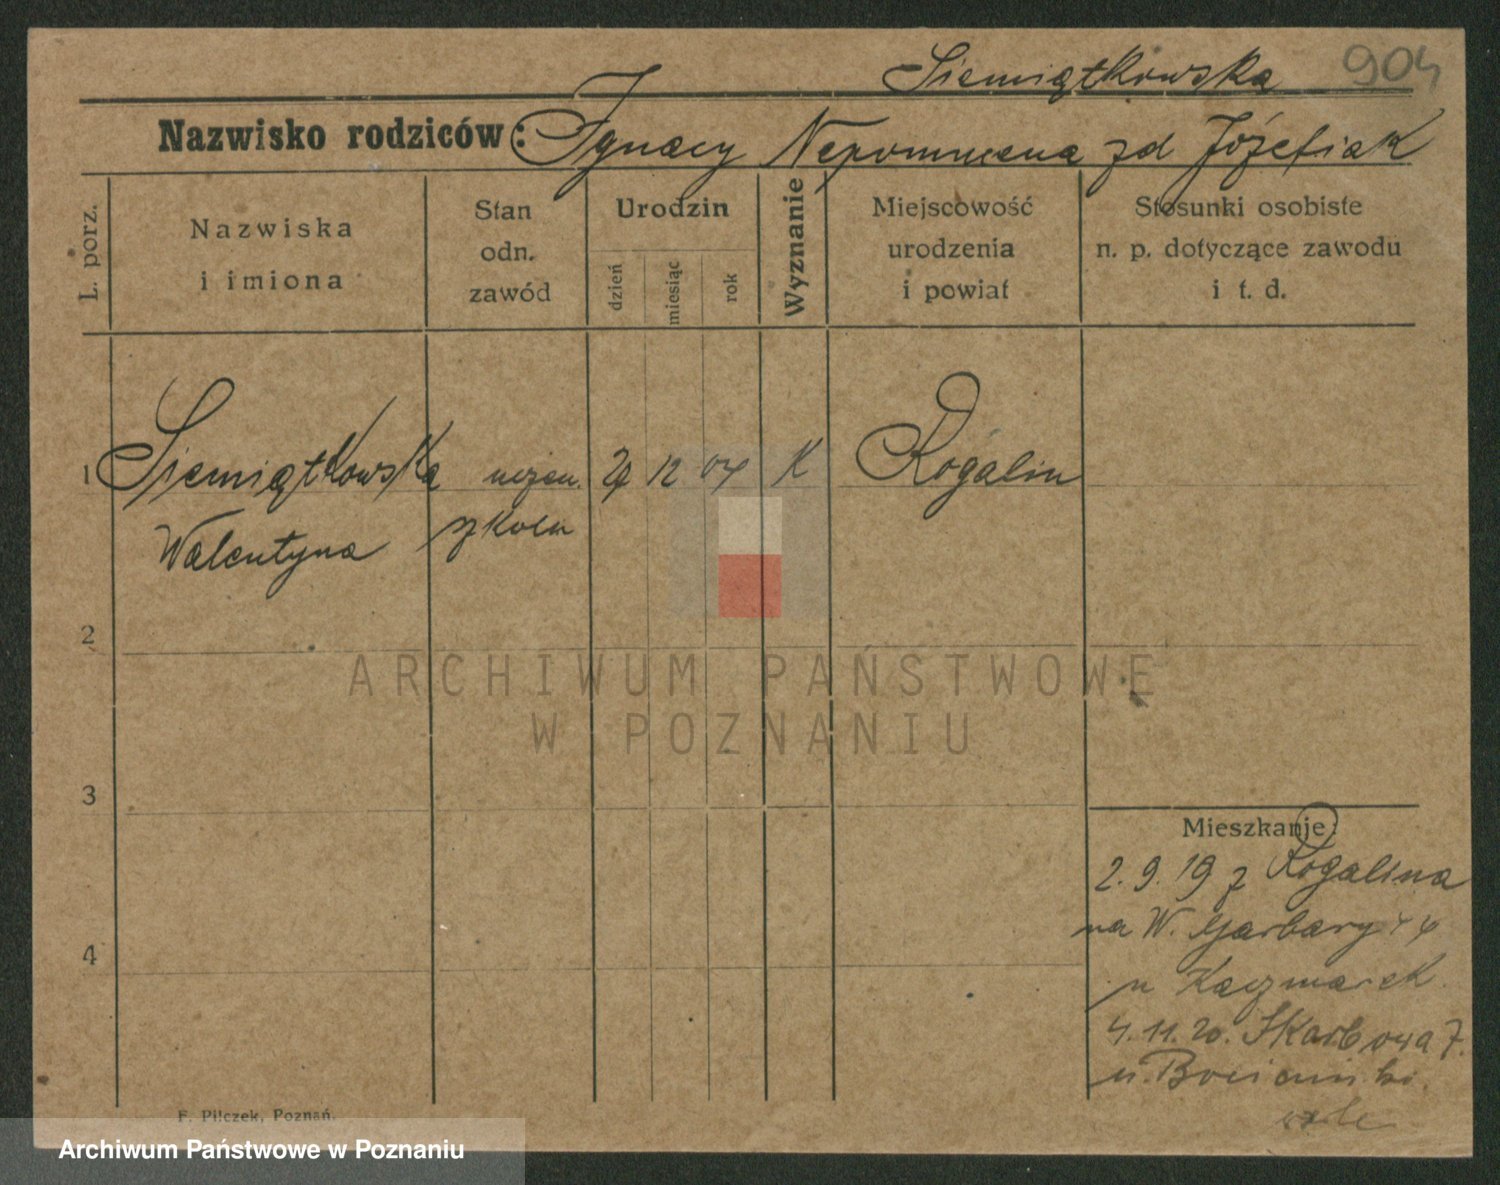 Siemiątkowska 904
Nazwisko rodziców: Ignacy Nepomucena zd Józefiak
L. porz.
Nazwiska
i imiona
Stan
odn.
zawód
Urodzin
dzień
miesiąc
rok
Wyznanie
Miejscowość
urodzenia
i powiat
Stosunki osobiste
n. p. dotyczące zawodu
i t. d.
1 Siemiątkowska 12 04 K Rogalin
Walentyna
2
3
4
Mieszkanie:
2.9.19 z Rogalina
na W. Garbary 44
u Kaczmarek
4.11.20. Skarbowa 7.
F. Pilczek, Poznań.
ARCHIWUM PAŃSTWOWE
W POZNANIU
Archiwum Państwowe w Poznaniu